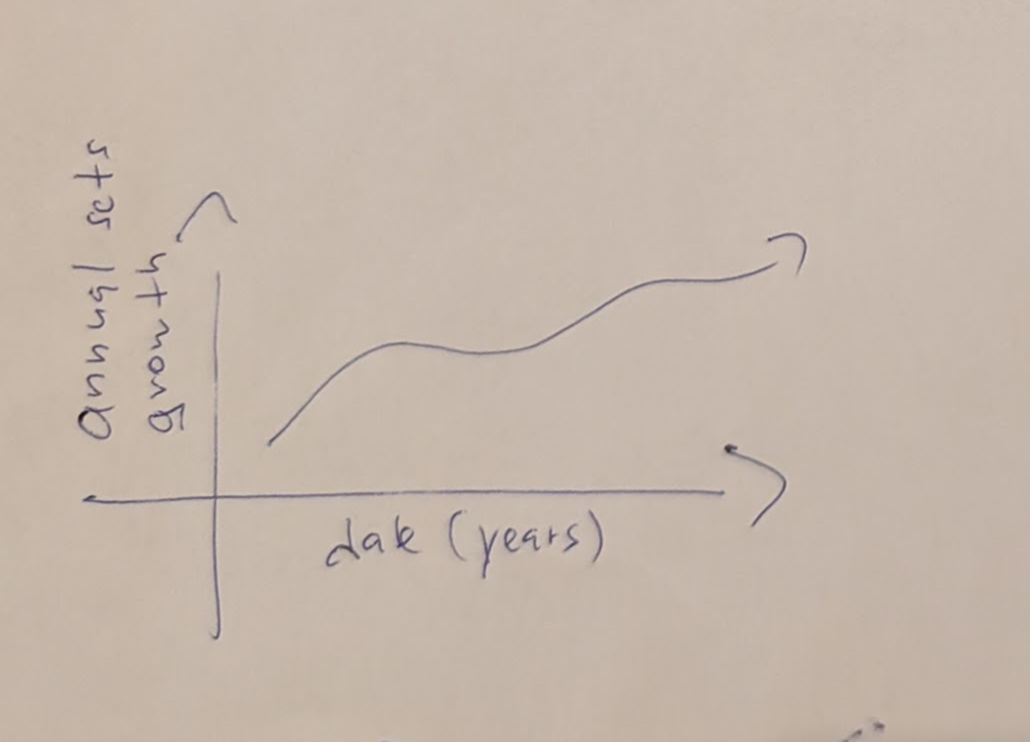 annual sets
growth
date (years)